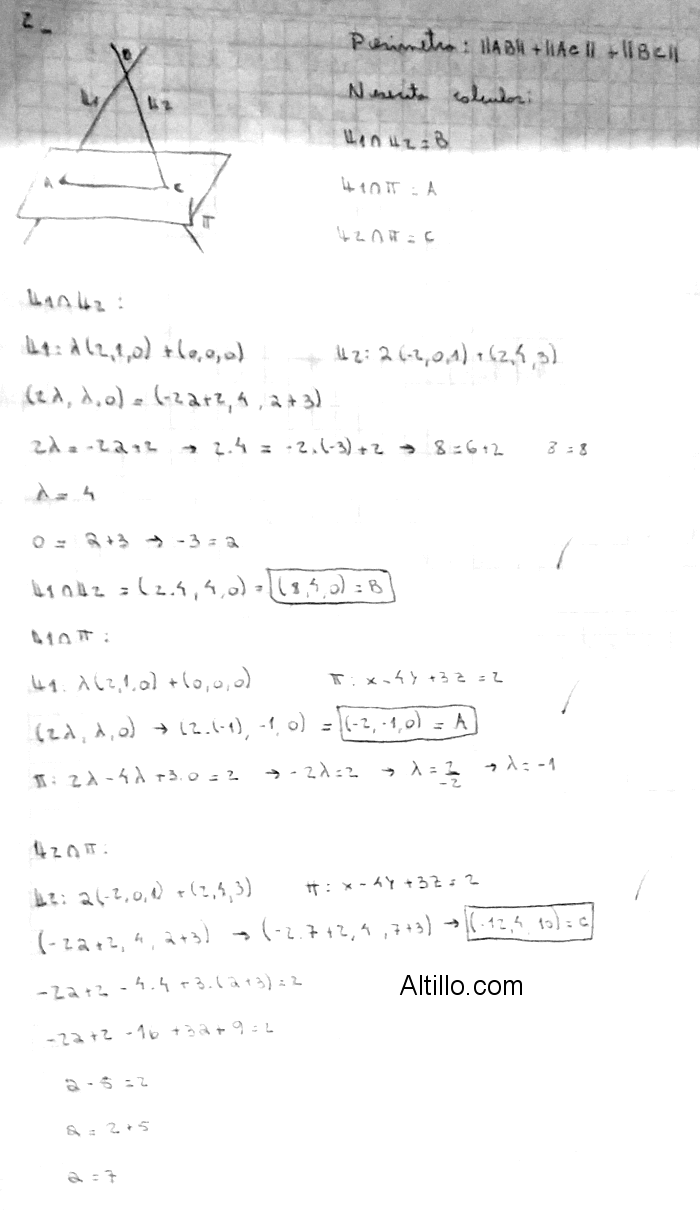 2_
B
L1 L2
A C
π
Perimetro: ||AB|| + ||AC|| + ||BC||
Necesito calcular:
L1∩L2 = B
L1∩π = A
L2∩π = C
L1∩L2:
L1: λ(2,1,0) + (0,0,0) L2: a(-2,0,1) + (2,4,3)
(2λ, λ, 0) = (-2a+2, 4, a+3)
2λ = -2a+2 → 2.4 = -2.(-3)+2 → 8=6+2 8=8
λ = 4
0 = a+3 → -3 = a
L1∩L2 = (2.4, 4, 0) = (8,4,0) = B
L1∩π:
L1: λ(2,1,0) + (0,0,0) π: x-4y+3z=2
(2λ, λ, 0) → (2.(-1), -1, 0) = (-2,-1,0) = A
π: 2λ-4λ+3.0=2 → -2λ=2 → λ=2/-2 → λ=-1
L2∩π:
L2: a(-2,0,1) + (2,4,3) π: x-4y+3z=2
(-2a+2, 4, a+3) → (-2.7+2, 4, 7+3) → (-12,4,10) = C
-2a+2-4.4+3.(a+3)=2
Altillo.com
-2a+2-16+3a+9=2
a-5=2
a=2+5
a=7